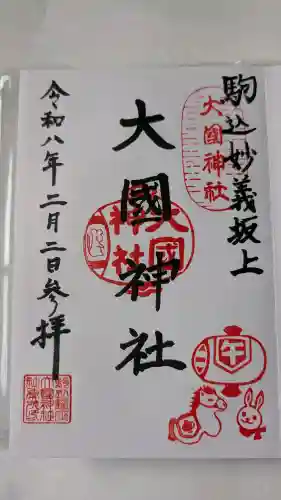 駒込妙義坂上
大國神社
大國神社
大國神社
午
令和八年二月二日参拝